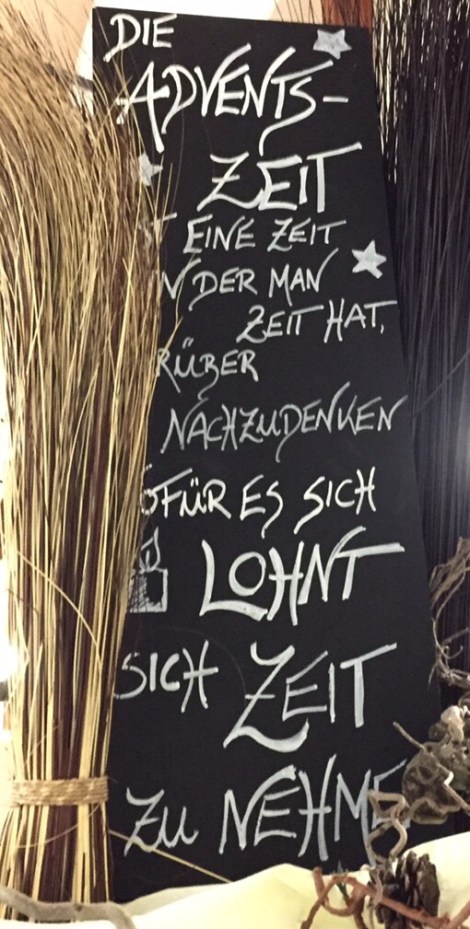 DIE
ADVENTS-
ZEIT
EINE ZEIT
DER MAN
ZEIT HAT,
RÜBER
NACHZUDENKEN
OFÜR ES SICH
LOHNT
SICH ZEIT
ZU NEHME